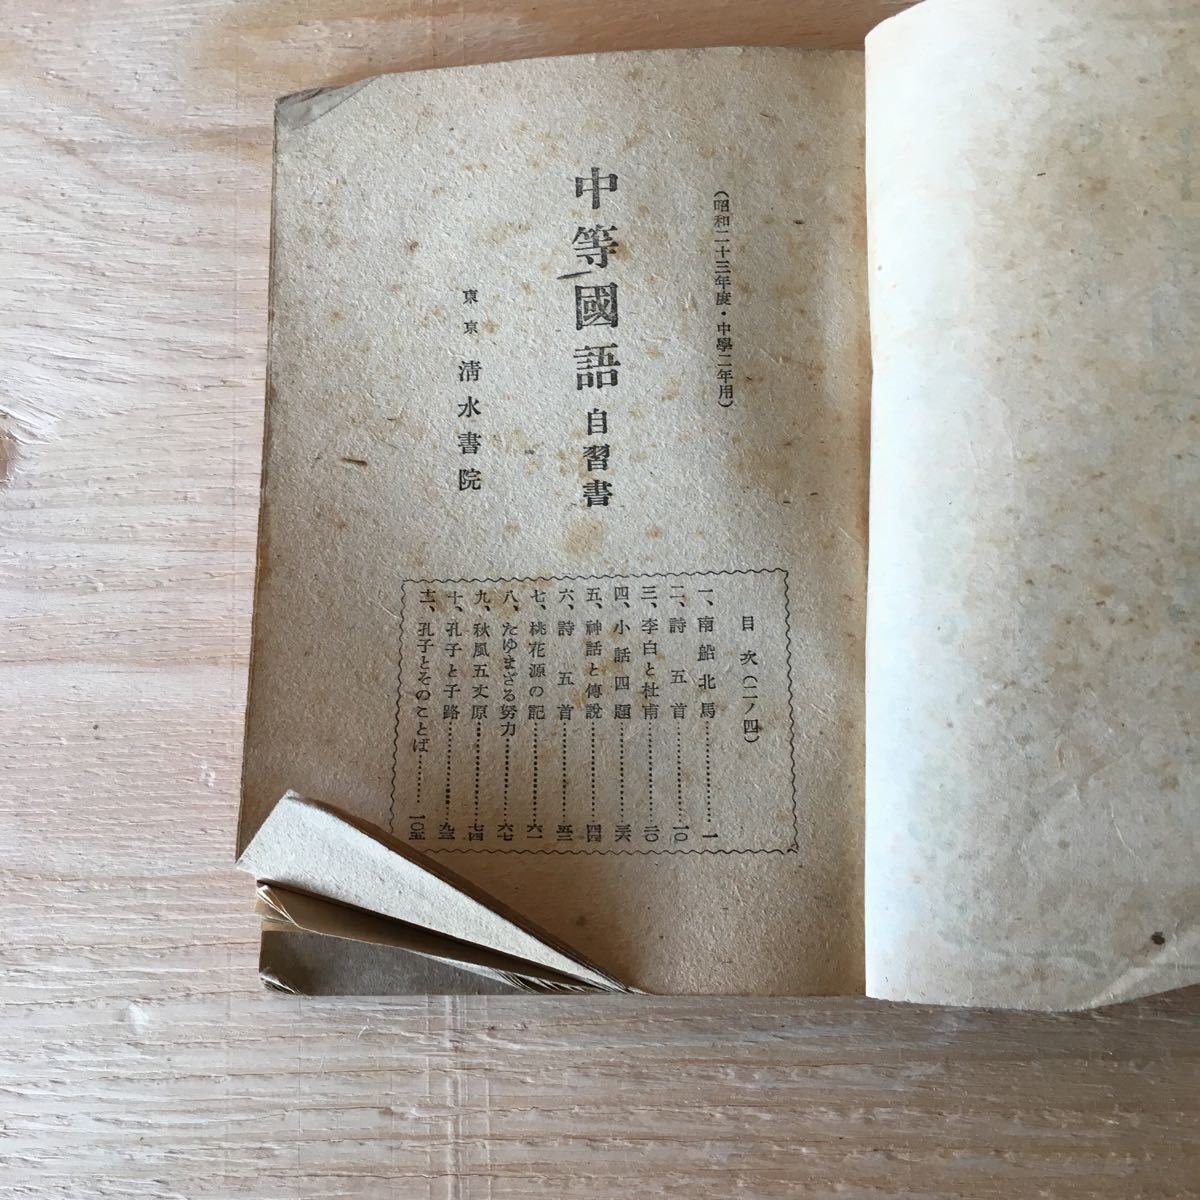 (昭和二十三年度・中學二年用)
中等國語 自習書
東京 淸水書院
目次(二ノ四)
一、南船北馬…………一
二、詩五首…………一〇
三、李白と杜甫…………二〇
四、小話四題…………三六
五、神話と傳說…………四四
六、詩五首…………五二
七、桃花源の記…………六一
八、たゆまざる努力…………六七
九、秋風五丈原…………七四
十、孔子と子路…………九三
十一、孔子とそのことば…………一〇五